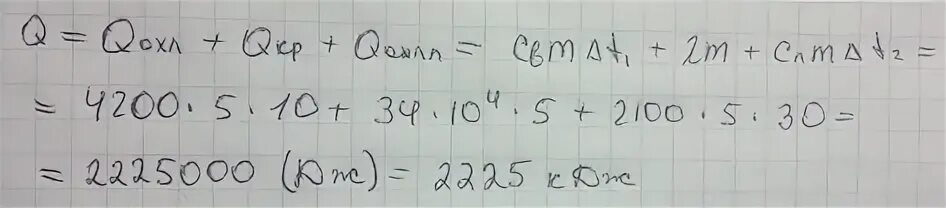 Q = Qохл + Qкр + Qохлл = cвmΔt₁ + λm + cлmΔt₂ =
= 4200 · 5 · 10 + 34 · 10⁴ · 5 + 2100 · 5 · 30 =
= 2225000 (Дж) = 2225 кДж